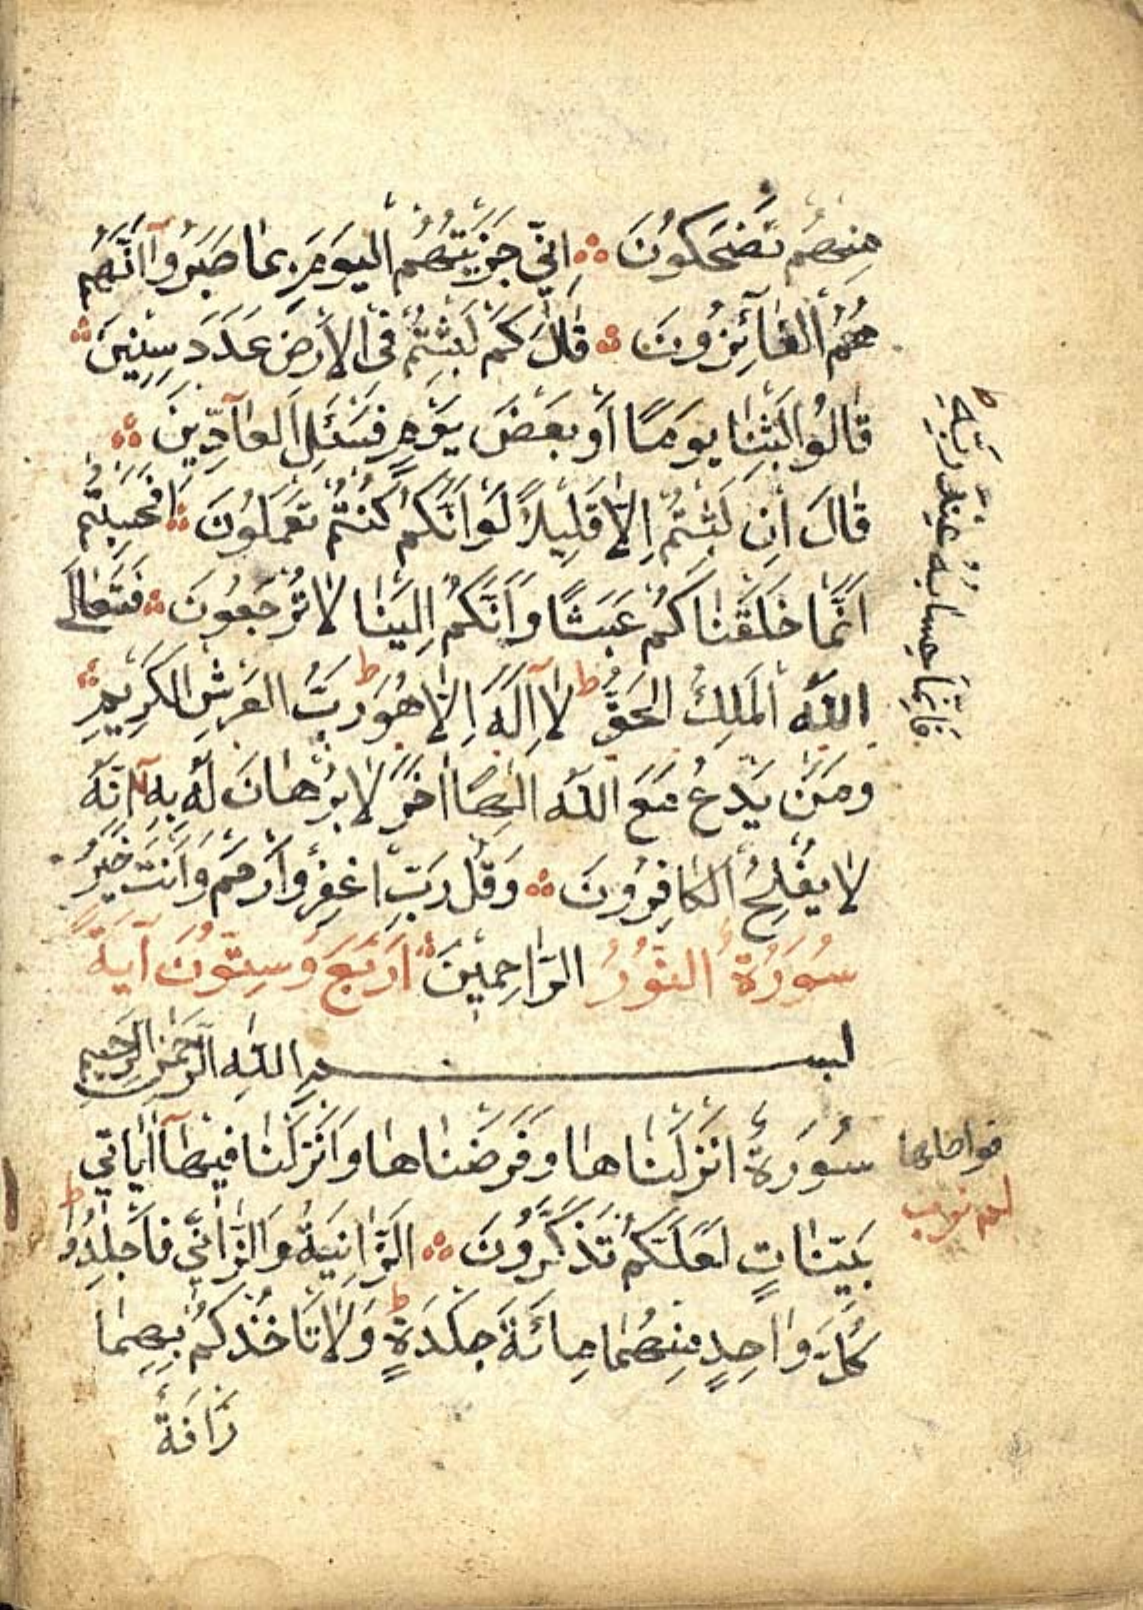 مِنْهُمْ تَضْحَكُونَ اِنّٖي جَزَيْتُهُمُ الْيَوْمَ بِمَا صَبَرُوٓا اَنَّهُمْ
هُمُ الْفَٓائِزُونَ قَالَ كَمْ لَبِثْتُمْ فِي الْاَرْضِ عَدَدَ سِنٖينَ
قَالُوا لَبِثْنَا يَوْمًا اَوْ بَعْضَ يَوْمٍ فَسْئَلِ الْعَٓادّٖينَ
قَالَ اِنْ لَبِثْتُمْ اِلَّا قَلٖيلًا لَوْ اَنَّكُمْ كُنْتُمْ تَعْمَلُونَ اَفَحَسِبْتُمْ
اَنَّمَا خَلَقْنَاكُمْ عَبَثًا وَاَنَّكُمْ اِلَيْنَا لَا تُرْجَعُونَ فَتَعَالَى
اللّٰهُ الْمَلِكُ الْحَقُّ ط لَٓا اِلٰهَ اِلَّا هُوَ ط رَبُّ الْعَرْشِ الْكَرٖيمِ
وَمَنْ يَدْعُ مَعَ اللّٰهِ اِلٰهًا اٰخَرَ لَا بُرْهَانَ لَهُ بِهٖ اِنَّهُ
لَا يُفْلِحُ الْكَافِرُونَ وَقُلْ رَبِّ اغْفِرْ وَارْحَمْ وَاَنْتَ خَيْرُ
سُورَةُ النُّورُ الرَّاحِمٖينَ اَرْبَعَ وَسِتُّونَ آيَةً
بِسْمِ اللّٰهِ الرَّحْمٰنِ الرَّحٖيمِ
سُورَةٌ اَنْزَلْنَاهَا وَفَرَضْنَاهَا وَاَنْزَلْنَا فٖيهَٓا اٰيَاتٖي
بَيِّنَاتٍ لَعَلَّكُمْ تَذَكَّرُونَ اَلزَّانِيَةُ وَالزَّانٖي فَاجْلِدُوا
كُلَّ وَاحِدٍ مِنْهُمَا مِائَةَ جَلْدَةٍ ط وَلَا تَاْخُذْكُمْ بِهِمَا
رَاْفَةٌ
فَاِنَّمَا حِسَابُهُ عِنْدَ رَبِّهٖ ط